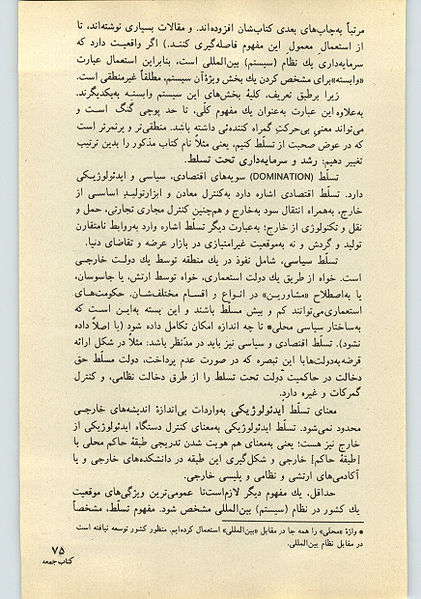 مرتباً به‌چاپ‌های بعدی کتاب‌شان افزوده‌اند. و مقالات بسیاری نوشته‌اند، تا
از استعمال معمول این مفهوم فاصله‌گیری کننـد.) اگر واقعیـت دارد که
سرمایه‌داری یك نظام (سیستم) بین‌المللی است، بنابراین استعمال عبارت
«وابسته»برای مشخص کردن یك بخش ویژهٔ‌آن سیستم، مطلقاً غیرمنطقی است.
زیرا برطبق تعریف، کلیهٔ بخش‌های این سیستم وابستـه به‌یکدیگرند.
به‌علاوه این عبارت به‌عنوان یك مفهوم کلّی، تا حد پوچی گنگ اسـت و
می‌تواند معنیِ بی‌حرکتِ گمراه کننده‌ئی داشته باشد. منطقی‌تر و پرثمرتر است
که در عوض صحبت از تسلّط کنیم، یعنی مثلاً نام کتاب مذکور را بدین ترتیب
تغییر دهیم: رشد و سرمایه‌داری تحت تسلط.
تسلّط (DOMINATION) سویه‌های اقتصادی، سیاسی و ایدئولوژیـکی
دارد. تسلّط اقتصادی اشاره دارد به‌کنترل معادن و ابزارتولیـدِ اساسـی از
خارج، به‌همراه انتقال سود به‌خارج و هم‌چنین کنترل مجاری تجارتی، حمل و
نقل و تکنولوژی از خارج؛ به‌عبارت دیگر تسلّط اشاره دارد به‌روابط نامتقارن
تولید و گردش و نه به‌موقعیت غیرامتیازی در بازار عرضه و تقاضای دنیا.
تسلط سیاسی، شامل نفوذ در یك منطقه توسط یك دولـت خارجـی
است. خواه از طریق یك دولت استعماری، خواه توسط ارتش، یا جاسوسان،
یا به‌اصطلاح «مشاورین» در انـواع و اقسـام مختلف‌شـان. حکومت‌هـای
استعماری‌می‌توانند کم و بیش مسلّط باشند و این بسته به‌ایـن اسـت که
به‌ساختار سیاسی محلی* تا چه اندازه امکان تکامل داده شود (یا اصلاً داده
نشود). تسلّط اقتصادی و سیاسی نیز باید در مدّنظر باشد: مثلاً در شکل ارائه
قرضه‌به‌دولت‌هابا این تبصره که در صورت عدم پرداخت، دولت مسلّط حق
دخالت در حاکمیت دولت تحت تسلط را از طرق دخالت نظامی، و کنترل
گمرکات و غیره دارد.
معنای تسلّط ایدئولوژیکی به‌واردات بی‌اندازهٔ اندیشه‌های خارجـی
محدود نمی‌شود. تسلط ایدئولوژیکی به‌معنای کنترل دستگاه ایدئولوژیکی از
خارج نیز هست؛ یعنی به‌معنای هم هویت شدن تدریجی طبقهٔ حاکم محلی با
[طبقهٔ حاکم] خارجی و شکل‌گیری این طبقه در دانشکده‌های خارجی و یا
آکادمی‌های ارتشی و نظامی و پلیسی خارجی.
حداقل، یك مفهوم دیگر لازم‌است‌تا عمومی‌ترین ویژگی‌های موقعیت
یك کشور در نظام (سیستم) بین‌المللی مشخص شود. مفهوم تسلّط، مشخصاً
* واژهٔ «محلی» را همه جا در مقابل «بین‌المللی» استعمال کرده‌ایم. منظور کشور توسعه نیافته است
در مقابل نظام بین‌المللی.
۷۵
کتاب جمعه